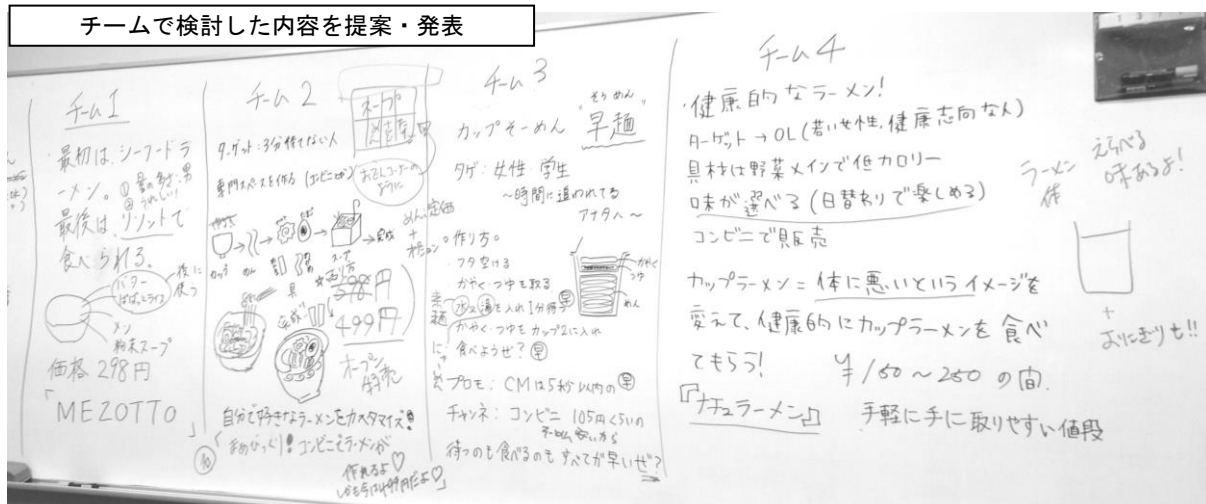 チームで検討した内容を提案・発表
チーム1
最初は、シーフードラ
ーメン。①量の多さ:男
②うれしい!
最後は、リゾットで
食べられる。
バター
後に
使う
メン
粉末スープ
価格 298円
「MEZOTTO」
チーム2
ターゲット:3分待てない人
専門スペースを作る(コンビニとか)
おでんコーナーの
ように
カップ
めん
具
スープ
完成
めん:定価
+
598円
499円
オープン
自分で好きなラーメンをカスタマイズ!
まぁびっくり!コンビニでラーメンが
作れるよ♡
しかも今は499円だよ♡」
チーム3
カップそーめん
"そうめん"
早麺
タゲ:女性・学生
~時間に追われてる
アナタへ~
作り方。
・フタ空ける
・かやく・つゆを取る
・水又湯を入れ1分待つ 早
・かやく・つゆをカップ2に入れ
食べようぜ? 早
かやく
つゆ
めん
プロモ:CMは5秒以内の 早
チャンネ:コンビニ 105円くらいの
待つのも食べるのもすべてが早いぜ?
チーム4
・健康的なラーメン!
ターゲット→OL(若い女性、健康志向な人)
具材は野菜メインで低カロリー
味が選べる(日替わりで楽しめる)
コンビニで販売
カップラーメン=体に悪いというイメージを
変えて、健康的にカップラーメンを食べ
てもらう!
¥150~250の間.
『ナチュラーメン』
手軽に手に取りやすい値段
ラーメン
えらべる
味あるよ!
+
おにぎりも!!